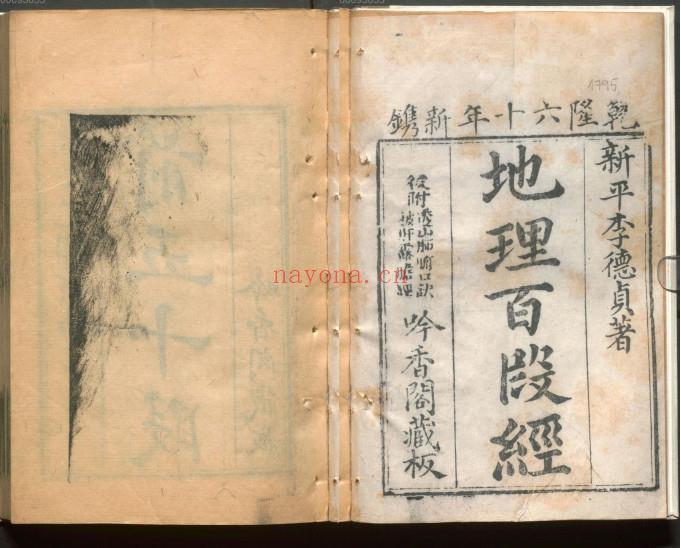 1795
乾隆六十年新鐫
新平李德貞著
地理百段經
後附
山口訣
披肝露膽經
吟香閣藏板
nayona.cn